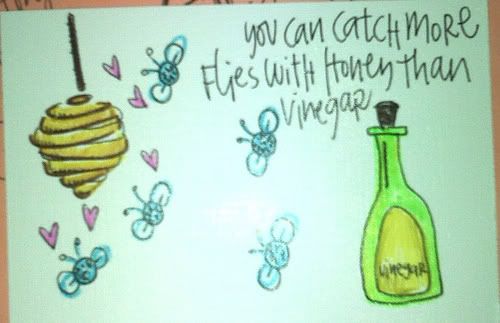 you can catch more
Flies with Honey than
vinegar
vinegar